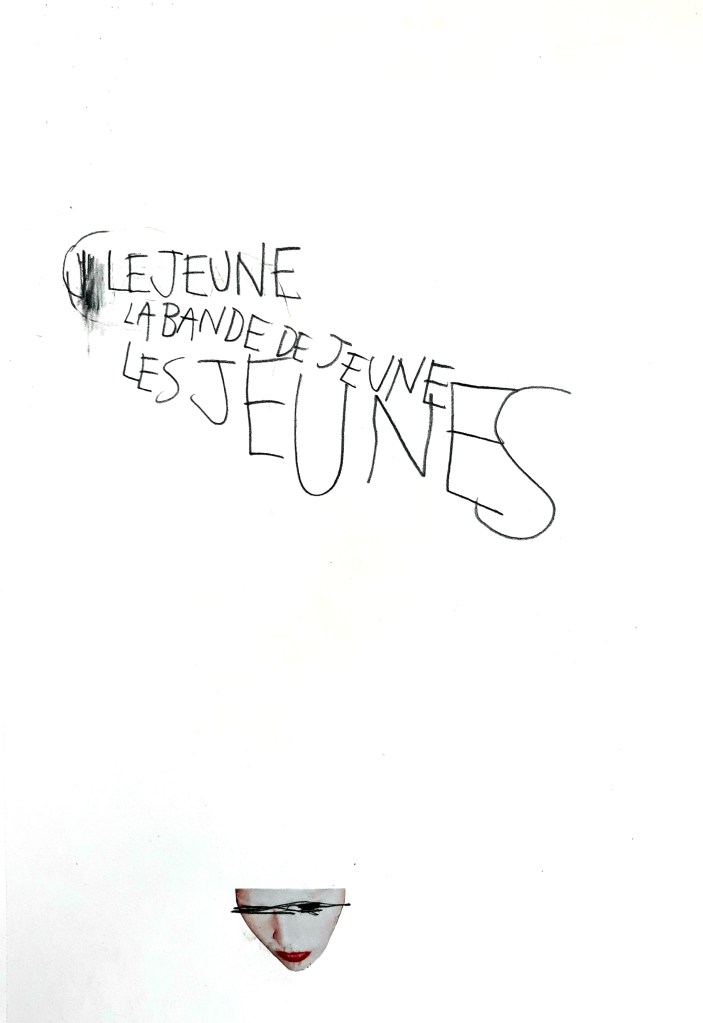 LE JEUNE
LA BANDE DE JEUNE
LES JEUNES